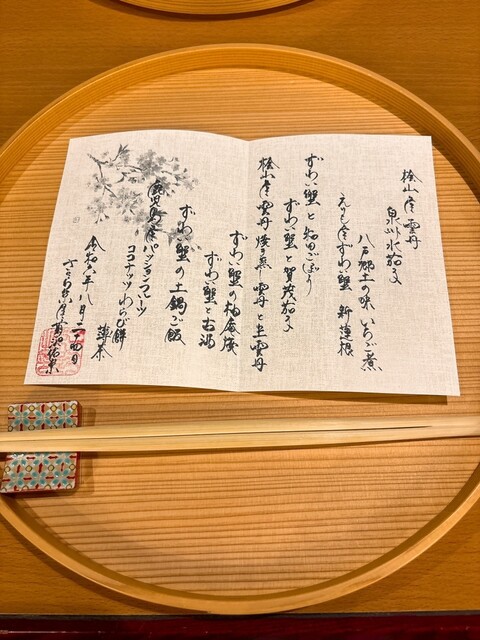 桧山産雲丹
泉州水茄子
八戸郷土の味 いちご煮
えりも産ずわい蟹 新蓮根
ずわい蟹と和田ごぼう
ずわい蟹と賀茂茄子
桧山産雲丹 焼き蒸し雲丹と生雲丹
ずわい蟹の柚庵焼
ずわい蟹と
ずわい蟹の土鍋ご飯
鹿児島産パッションフルーツ
ココナッツわらび餅
薄茶
令和六年八月二十四日